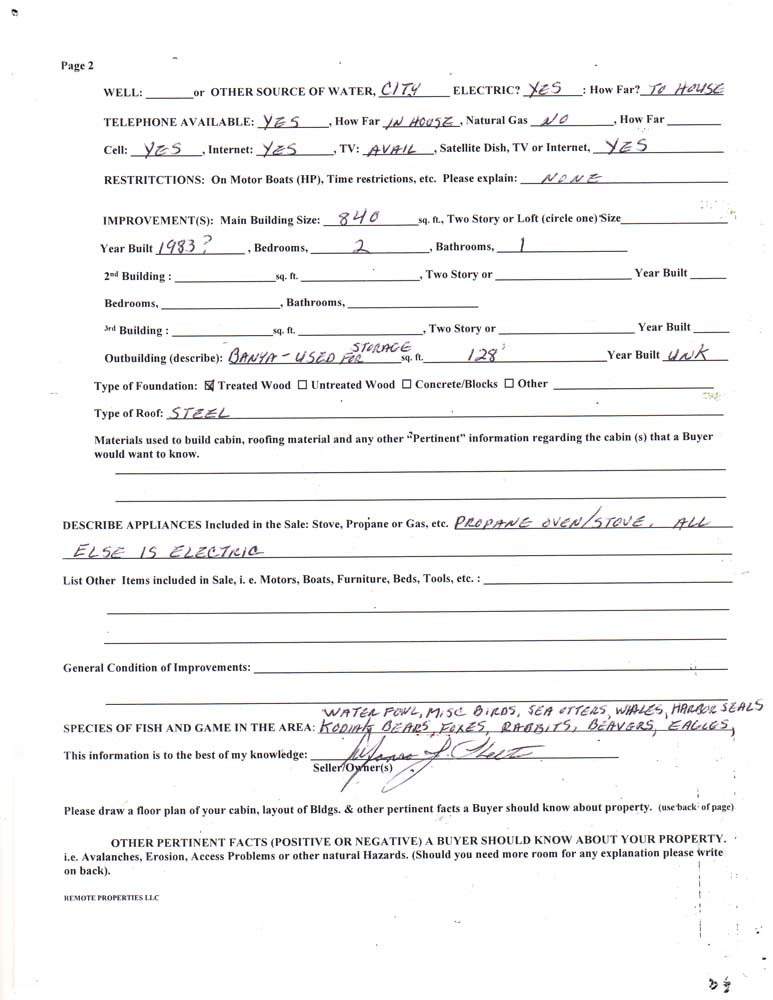 Page 2
WELL: _______or OTHER SOURCE OF WATER, CITY ELECTRIC? YES : How Far? TO HOUSE
TELEPHONE AVAILABLE: YES , How Far IN HOUSE , Natural Gas NO , How Far ________
Cell: YES , Internet: YES , TV: AVAIL , Satellite Dish, TV or Internet, YES
RESTRITCTIONS: On Motor Boats (HP), Time restrictions, etc. Please explain: NONE
IMPROVEMENT(S): Main Building Size: 840 sq. ft., Two Story or Loft (circle one) Size________
Year Built 1983? , Bedrooms, 2 , Bathrooms, 1
2nd Building : ________ sq. ft. ________, Two Story or ________ Year Built _____
Bedrooms, ________, Bathrooms, ________
3rd Building : ________ sq. ft. ________, Two Story or ________ Year Built _____
Outbuilding (describe): BANYA - USED FOR STORAGE sq. ft. 128' Year Built UNK
Type of Foundation: ☒ Treated Wood ☐ Untreated Wood ☐ Concrete/Blocks ☐ Other ________
Type of Roof: STEEL
Materials used to build cabin, roofing material and any other "Pertinent" information regarding the cabin (s) that a Buyer
would want to know.
DESCRIBE APPLIANCES Included in the Sale: Stove, Propane or Gas, etc. PROPANE OVEN/STOVE. ALL
ELSE IS ELECTRIC
List Other Items included in Sale, i. e. Motors, Boats, Furniture, Beds, Tools, etc. : ________
General Condition of Improvements: ________
WATER FOWL, MISC BIRDS, SEA OTTERS, WHALES, HARBOR SEALS
SPECIES OF FISH AND GAME IN THE AREA: KODIAK BEARS, FOXES, RABBITS, BEAVERS, EAGLES,
This information is to the best of my knowledge:
Seller/Owner(s)
Please draw a floor plan of your cabin, layout of Bldgs. & other pertinent facts a Buyer should know about property. (use back of page)
OTHER PERTINENT FACTS (POSITIVE OR NEGATIVE) A BUYER SHOULD KNOW ABOUT YOUR PROPERTY.
i.e. Avalanches, Erosion, Access Problems or other natural Hazards. (Should you need more room for any explanation please write
on back).
REMOTE PROPERTIES LLC